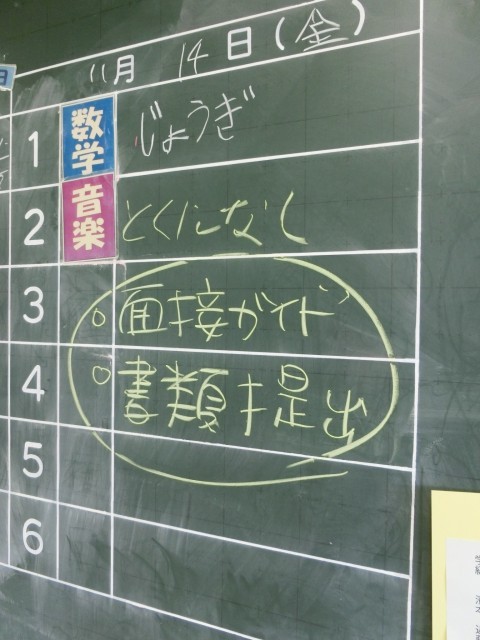 11月 14日(金)
1 数学 じょうぎ
2 音楽 とくになし
3 ○面接ガイド
4 ○書類提出
5
6
日